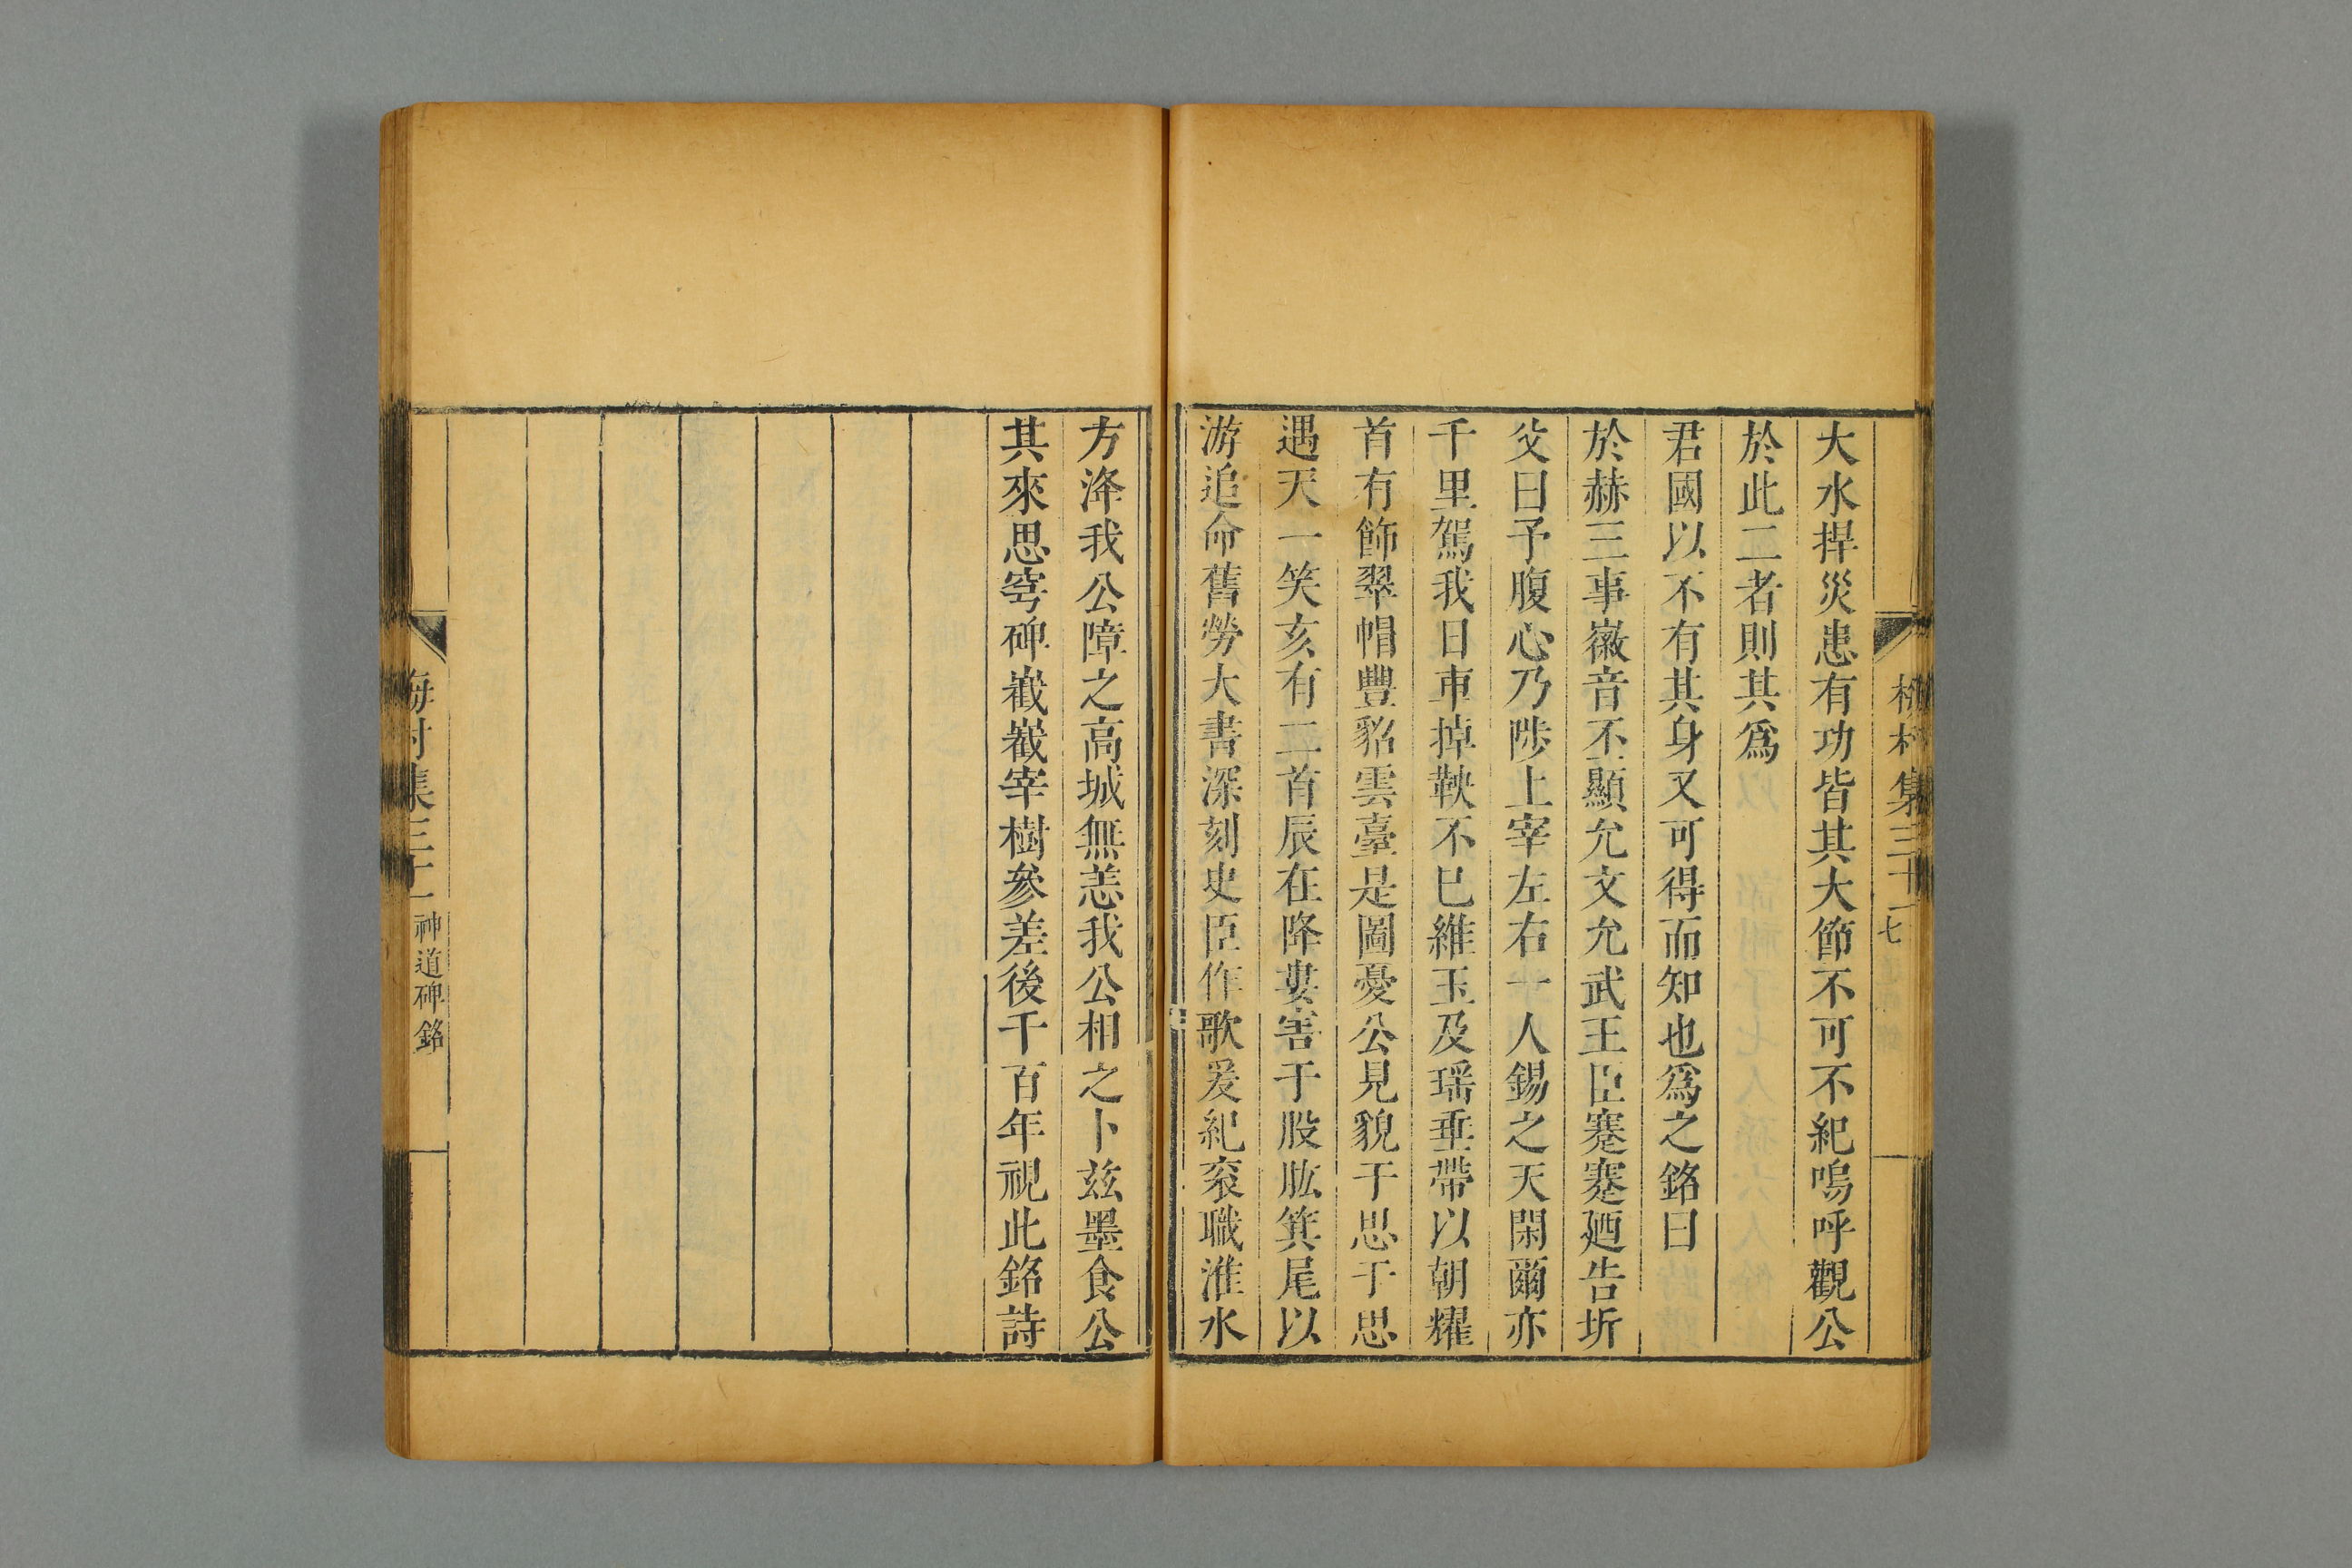 大水捍災患有功皆其大節不可不紀嗚呼觀公
於此二者則其爲
君國以不有其身又可得而知也爲之銘曰
於赫三事徽音不顯允文允武王臣蹇蹇廼告圻
父曰予腹心乃陟上宰左右一人錫之天閑爾亦
千里駕我日車掉鞅不已維玉及瑶垂帶以朝耀
首有飾翠帽豐貂雲臺是圖憂公見貌于思于思
遇天一笑亥有二首辰在降婁害于股肱箕尾以
游追命舊勞大書深刻史臣作歌爰紀衮職淮水
方洚我公障之高城無恙我公相之卜兹墨食公
其來思穹碑嶻嶻宰樹參差後千百年視此銘詩
集三十一 七
海村集三十一 神道碑銘